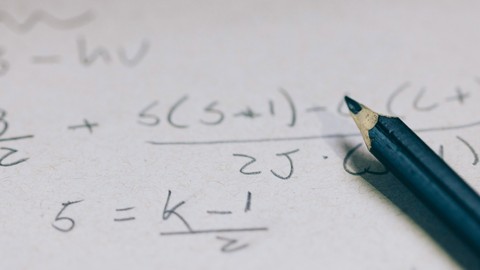 - hν
3/2 + s(s+1) - (L+ / 2J · 1)
5 = k-1 / 2